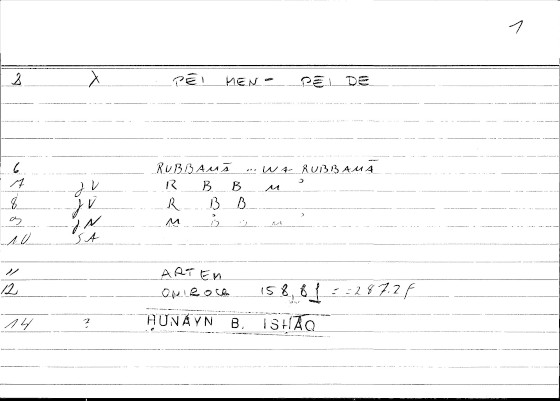 1
2 λ ΡΕΙ ΜΕΝ - ΡΕΙ DE
6 RUBBAMĀ ... WA-RUBBAMĀ
7 JV R B B M
8 JV R B B
9 JN M
10 SA
11 ARTEM
12 ONIROCR 158,8f = 287.2f
14 ? ḤUNAYN B. ISḤĀQ